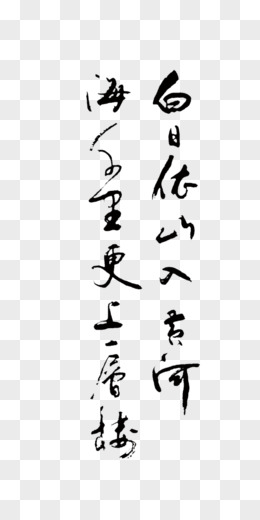 白日依山入黄河
海千里更上一層楼